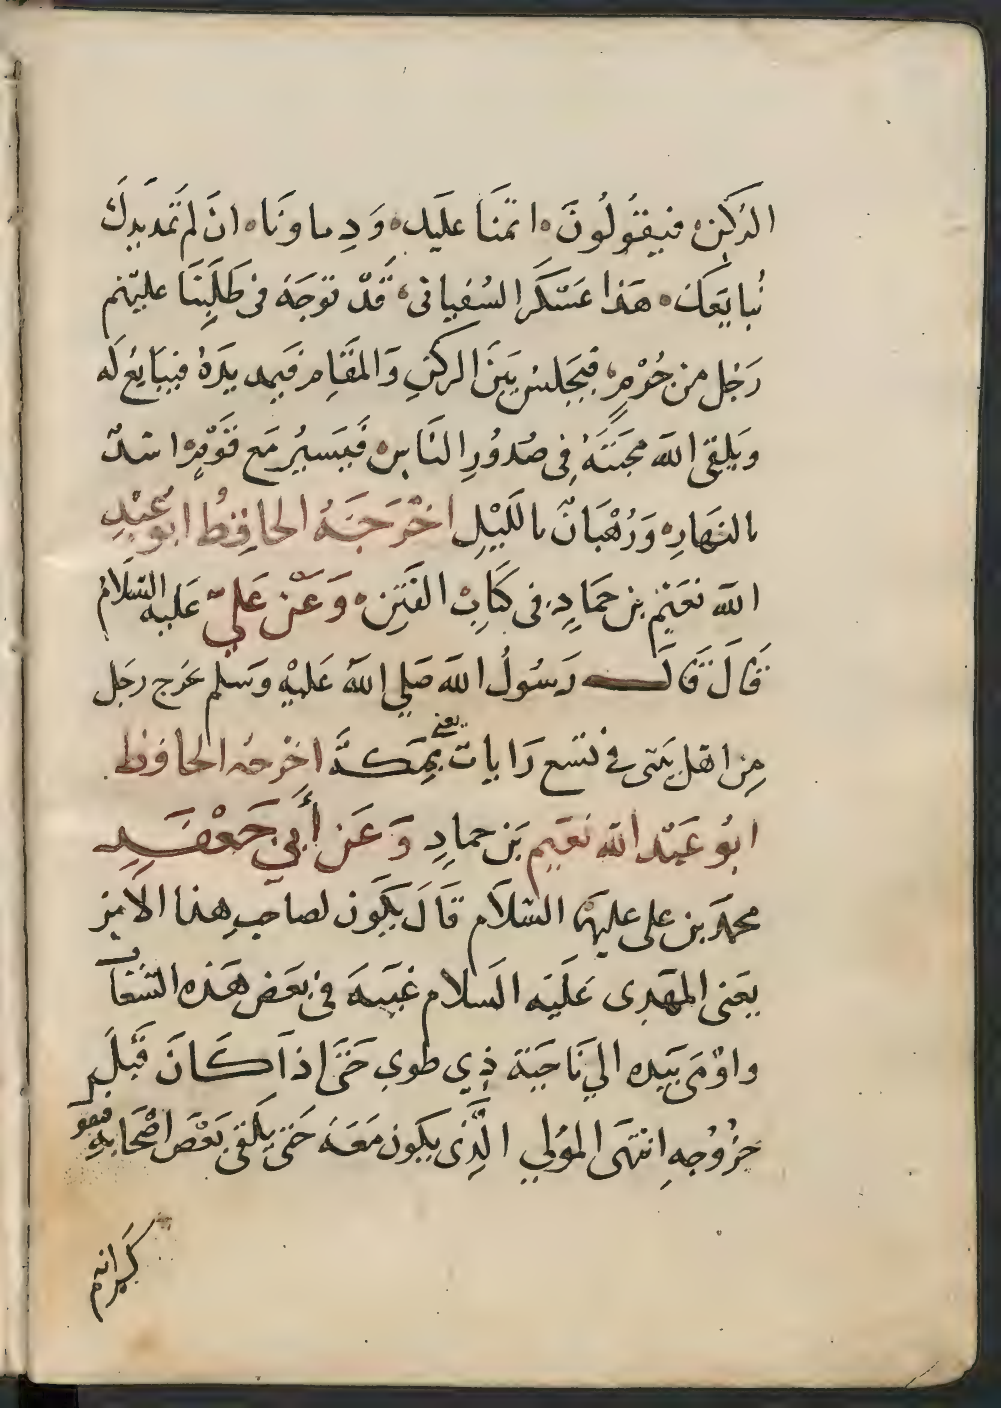 الركن فيقولون اثمنا عليك ودماونا ان لم تمد يدك
نبايعك هذا عسكر السفياني قد توجه في طلبنا عليهم
رجل من حرم فيجلس بين الركن والمقام فيمد يده فيبايع له
ويلقى الله محبته في صدور الناس فيسير مع قوم اسد
بالنهار ورهبان بالليل اخرجه الحافظ ابو عبد
الله نعيم بن حماد في كتاب الفتن وعن علي عليه السلام
قال قال رسول الله صلي الله عليه وسلم خرج رجل
من اهل بيتى في تسع رايات يعني بمكة اخرجه الحافظ
ابو عبد الله نعيم بن حماد وعن أبي جعفر
محمد بن على عليهما السلام قال يكون لصاحب هذا الامر
يعنى المهدى عليه السلام غيبة في بعض هذه الشعاب
واومى بيده الي ناحية ذي طوي حتى اذا كان قبل
خروجه انتهى المولي الذى يكون معه حتى يلقى بعض اصحابه فيقو